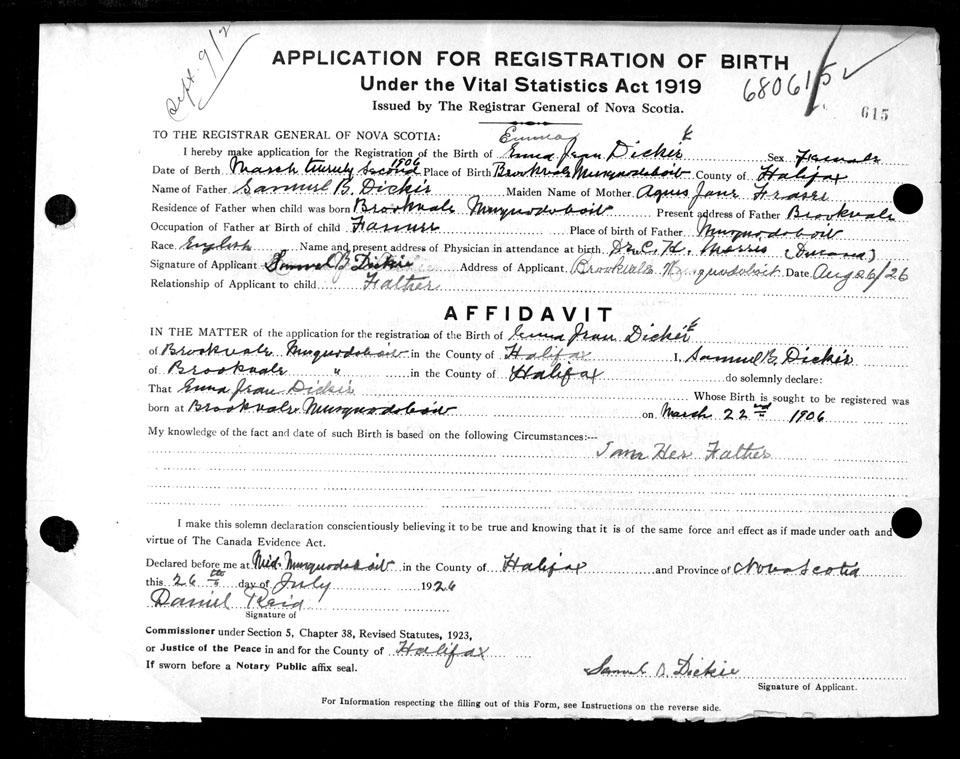 Sept. 9/2
APPLICATION FOR REGISTRATION OF BIRTH
Under the Vital Statistics Act 1919
Issued by The Registrar General of Nova Scotia.
680615
615
TO THE REGISTRAR GENERAL OF NOVA SCOTIA:
I hereby make application for the Registration of the Birth of Enna Jean Dickie Sex Female
Date of Berth March twenty second 1906 Place of Birth Brookvale Musquodoboit County of Halifax
Name of Father Samuel B. Dickie Maiden Name of Mother Agnes Jane Fraser
Residence of Father when child was born Brookvale Musquodoboit Present address of Father Brookvale
Occupation of Father at Birth of child Farmer Place of birth of Father Musquodoboit
Race English Name and present address of Physician in attendance at birth Dr. C. H. Morris
Signature of Applicant Samuel B Dickie Address of Applicant Brookvale Musquodoboit Date Aug 26/26
Relationship of Applicant to child Falther
AFFIDAVIT
IN THE MATTER of the application for the registration of the Birth of Enna Jean Dickie
of Brookvale Musquodoboit in the County of Halifax I, Samuel B. Dickie
of Brookvale " in the County of Halifax do solemnly declare:
That Enna Jean Dickie Whose Birth is sought to be registered was
born at Brookvale Musquodoboit on March 22nd 1906
My knowledge of the fact and date of such Birth is based on the following Circumstances:--
I am Her Falther
I make this solemn declaration conscientiously believing it to be true and knowing that it is of the same force and effect as if made under oath and
virtue of The Canada Evidence Act.
Declared before me at Mid. Musquodoboit in the County of Halifax and Province of Nova Scotia
this 26th day of July 1926
Daniel Reid
Signature of
Commissioner under Section 5, Chapter 38, Revised Statutes, 1923,
or Justice of the Peace in and for the County of Halifax
If sworn before a Notary Public affix seal.
Samuel B. Dickie
Signature of Applicant.
For Information respecting the filling out of this Form, see Instructions on the reverse side.